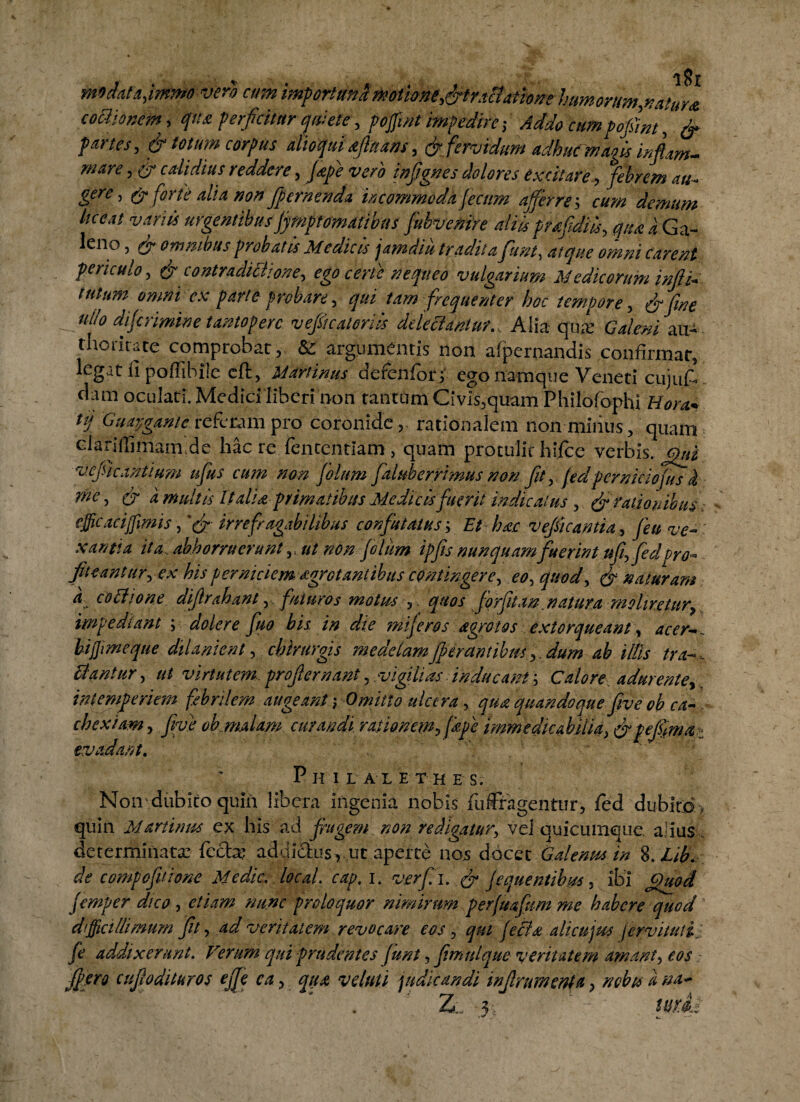 181
modata,immo vero cum importunâ motione,&tractatione humorum,naturæ
coctionem, quæ perficitur quiete, possint impedire; Addo cum possint, &
partes, & totum corpus alioqui æstuans, & fervidum adhuc magis inflam-
mare, & calidius reddere, sæpe vero insignes dolores excitare, febrem au-
gere, & forte alia non spernenda incommoda secum afferre; cum demum
liceat variis urgentibus symptomatibus subvenire aliis præsidiis, quæ à Ga-
leno, & omnibus probatis Medicis jamdiu tradita sunt, atque omni carent
periculo, & contradictione, ego certe nequeo vulgarium Medicorum insti-
tutum omni ex parte probare, qui tam frequenter hoc tempore, & sine
ullo discrimine tantopere vesicatoriis delectantur. Alia quæ Galeni au-
thoritate comprobat, & argumentis non aspernandis confirmat,
legat si possibile est, Martinus defensor; ego namque Veneti cujus-
dam oculati. Medici liberi non tantum Civis,quam Philosophi Hora-
tij Guarygante referam pro coronide, rationalem non minus, quam
clarissimam de hâc re sententiam, quam protulit hisce verbis. Qui
vesicantium usus cum non solum saluberrimus non sit, sed perniciosus à
me, & à multis Italiæ primatibus Medicis fuerit indicatus, & rationibus
efficacissimis, & irrefragabilibus confutatus; Et hæc vesicantia, seu ve-
xantia ita abhorruerunt, ut non solum ipsis nunquam fuerint usi, sed pro-
fiteantur, ex his perniciem ægrotantibus contingere, eo, quod, & naturam
à coctione distrahant, futuros motus, quos forsitan natura moliretur,
impediant; dolere suo bis in die miseros ægrotos extorqueant, acer-
bissimeque dilanient, chirurgis medelam sperantibus, dum ab illis tra-
ctantur, ut virtutem prosternant, vigilias inducant; Calore adurente,
intemperiem febrilem augeant; Omitto ulcera, quæ quandoque sive ob ca-
chexiam, sive ob malam curandi rationem, sæpe immedicabilia, & pessima
evadant.
PHILALETHES.
Non dubito quin libera ingenia nobis suffragentur, sed dubito
quin Martinus ex his ad frugem non redigatur, vel quicumque alius
determinatæ sectæ addictus, ut aperte nos docet Galenus in 8. Lib.
de compositione Medic. local. cap. 1. vers. 1. & sequentibus, ibi Quod
semper dico, etiam nunc proloquor nimirum persuasum me habere quod
difficillimum sit, ad veritatem revocare eos, qui sectæ alicujus servituti
se addixerunt. Verum qui prudentes sunt, simulque veritatem amant, eos
spero custodituros esse ea, quæ veluti judicandi instrumenta, nobis à na-
Z 3 turâ